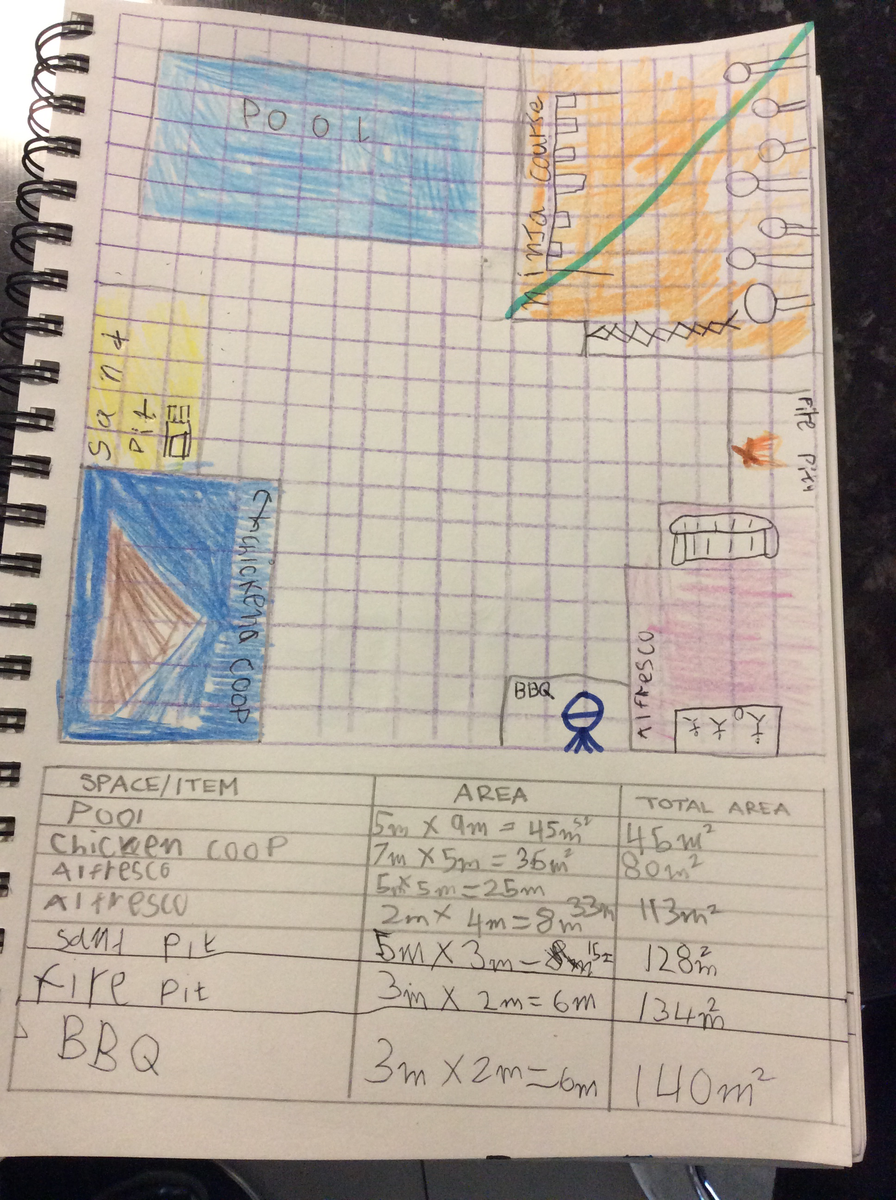 POOL
ninja course
Sant
Pit
Fire Pity
Chchickena COOP
Alfresco
BBQ
SPACE/ITEM AREA TOTAL AREA
Pool 5m X 9m = 45m² 45m²
Chicken COOP 7m X 5m = 35m² 80m²
Alfresco 5m X 5m = 25m
Alfresco 2m X 4m = 8m 33m 113m²
Sant Pit 5m X 3m = 15 128m²
Fire Pit 3m X 2m = 6m 134m²
BBQ 3m X 2m = 6m 140m²